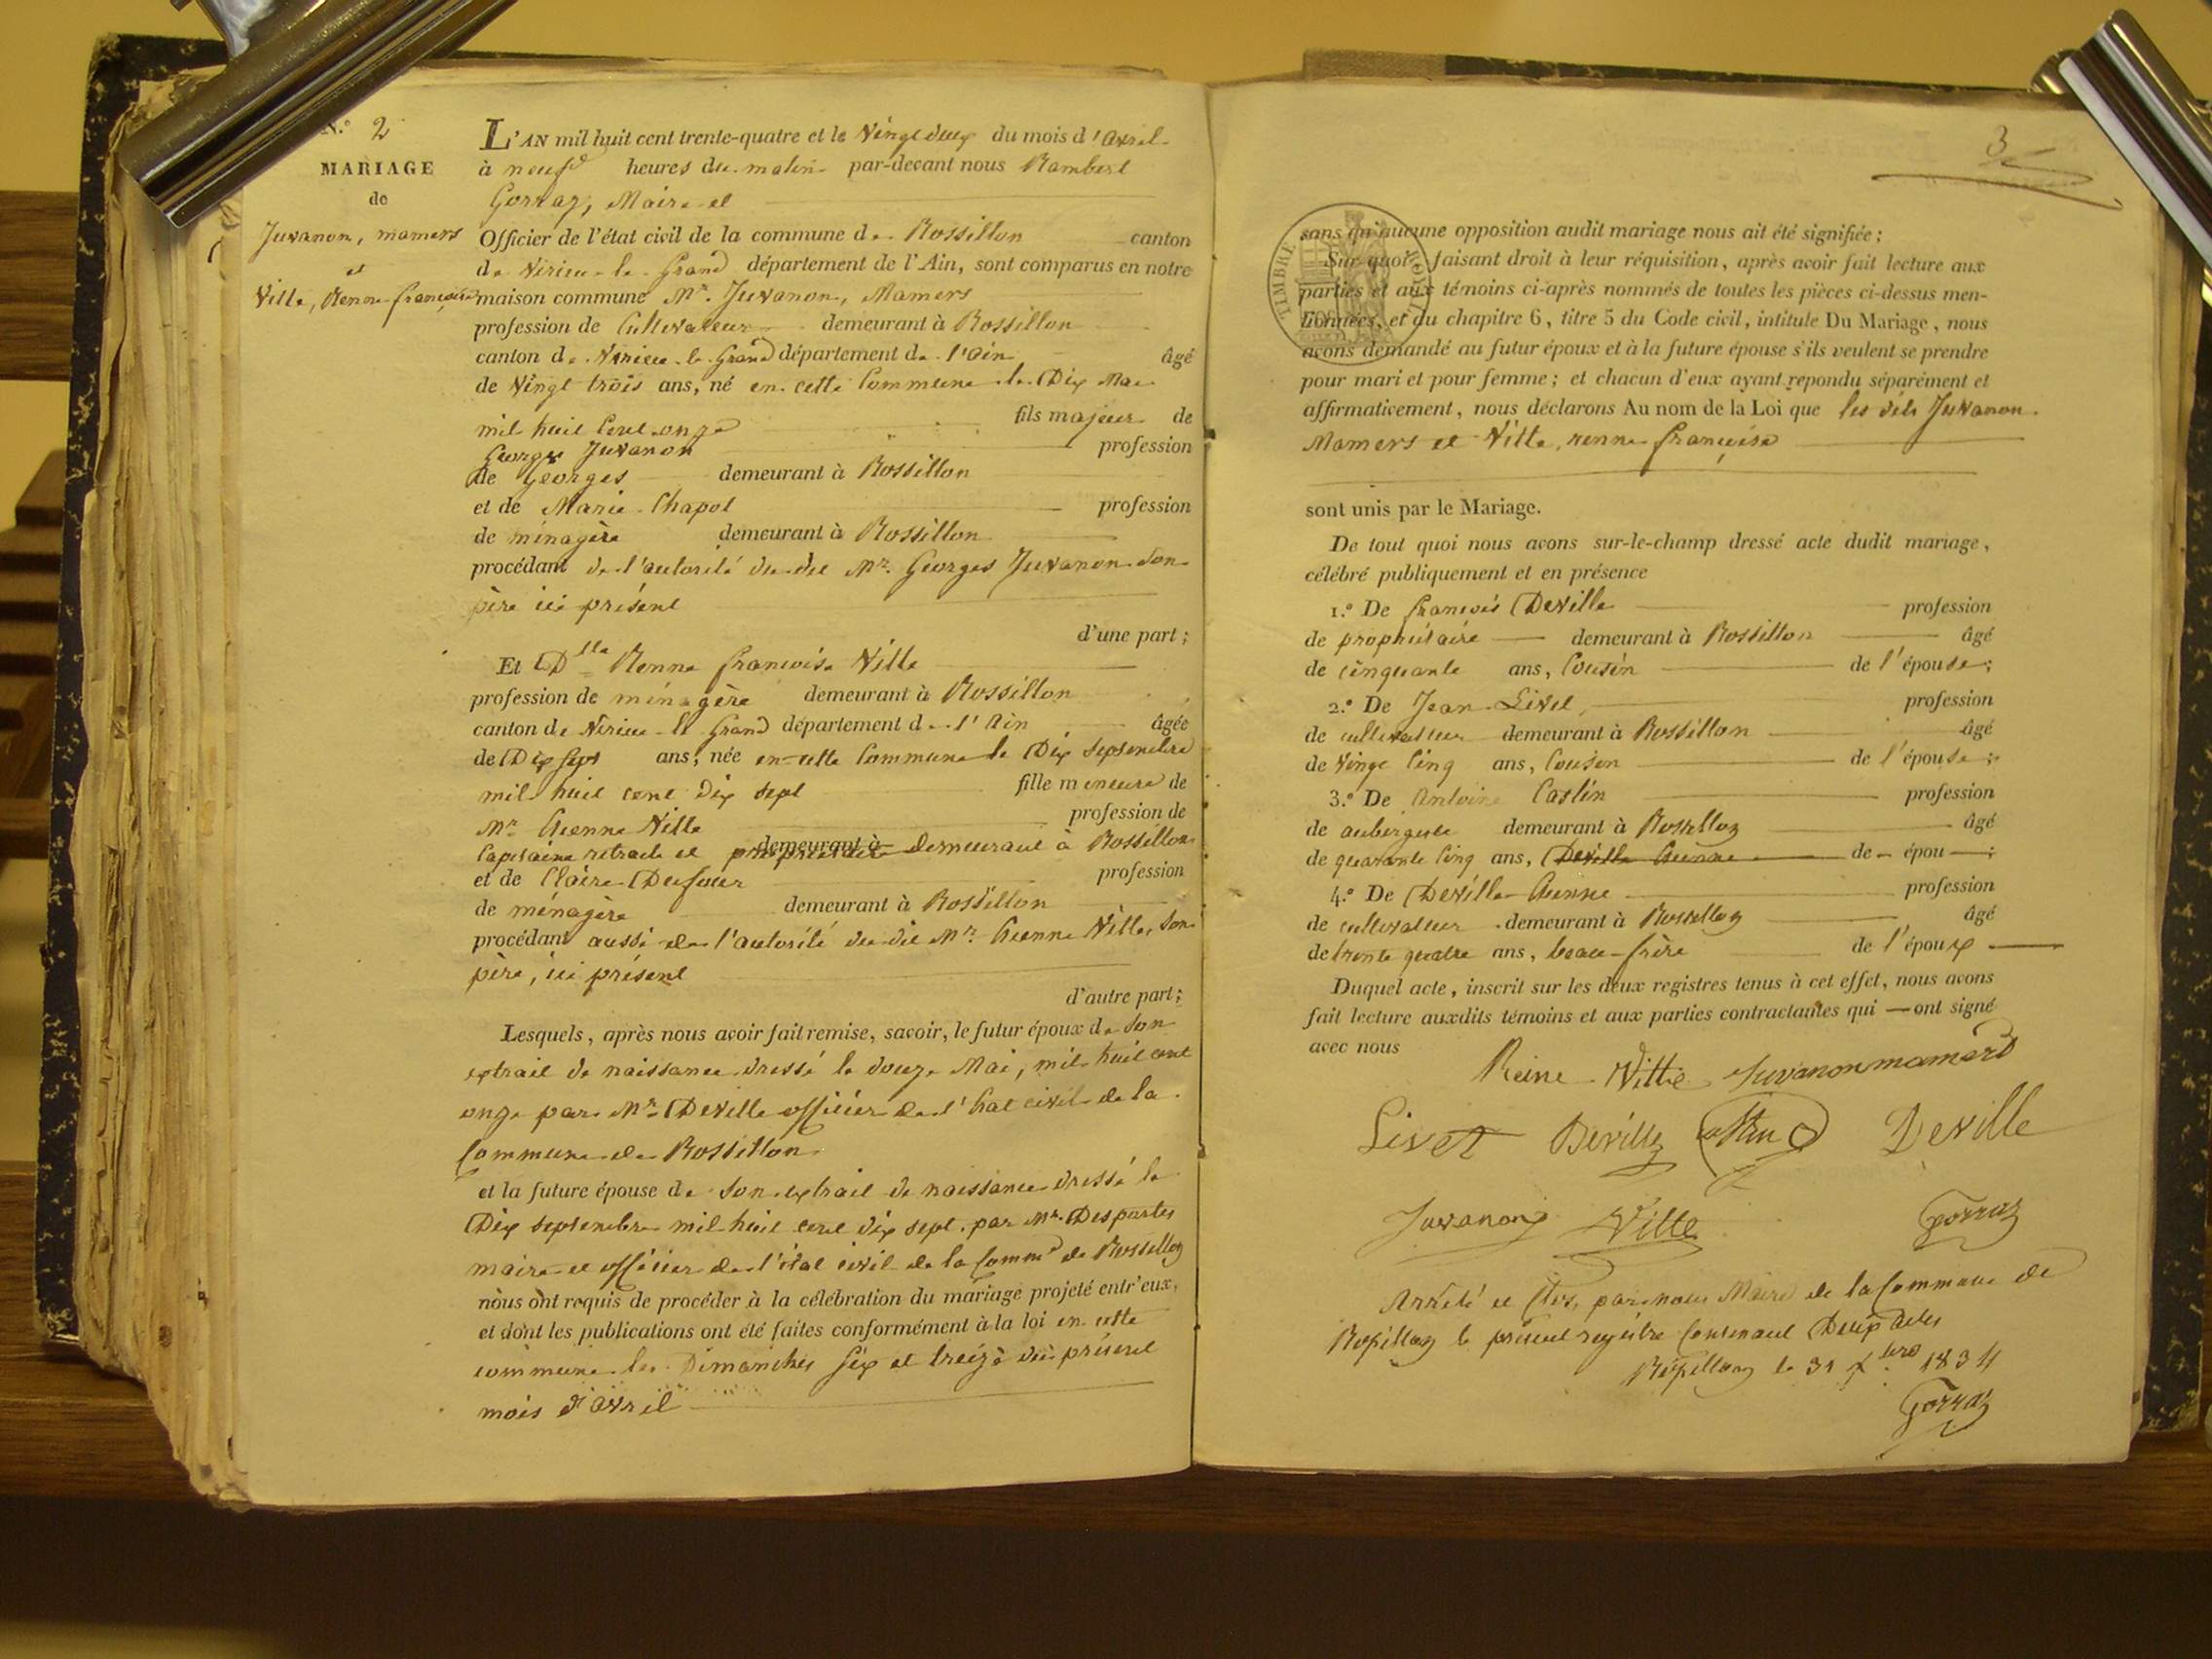 N.º 2
MARIAGE
de
Juvanon, mamers
et
Ville, Renne françoise
L'AN mil huit cent trente-quatre et le vingt deux du mois d'avril
à neuf heures du matin par-devant nous Rambert
Gorraz, Maire et
Officier de l'état civil de la commune de Rossillon canton
de Virieu-le-Grand département de l'Ain, sont comparus en notre
maison commune Mr. Juvanon, Mamers
profession de Cultivateur demeurant à Rossillon
canton de Virieu-le-Grand département de l'Ain âgé
de vingt trois ans, né en cette Commune le Dix Mai
mil huit cent onze fils majeur de
George Juvanon profession
de Georges demeurant à Rossillon
et de Marie Chapot profession
de ménagère demeurant à Rossillon
procédant de l'autorité du dit Mr. Georges Juvanon son
père ici présent
d'une part;
Et Dlle Renne françoise Ville
profession de ménagère demeurant à Rossillon
canton de Virieu-le-Grand département de l'Ain âgée
de Dix sept ans, née en cette Commune le Dix septembre
mil huit cent dix sept fille mineure de
Mr. Etienne Ville profession de
Capitaine retraité et propriétaire demeurant à demeurant à Rossillon
et de Claire Dufour profession
de ménagère demeurant à Rossillon
procédant aussi de l'autorité du dit Mr. Etienne Ville, son
père, ici présent
d'autre part;
Lesquels, après nous avoir fait remise, savoir, le futur époux de son
extrait de naissance dressé le douze Mai, mil huit cent
onze par Mr. Deville officier de l'état civil de la
Commune de Rossillon
et la future épouse de son extrait de naissance dressé le
Dix septembre mil huit cent dix sept par Mr. Desportes
maire et officier de l'état civil de la Comme de Rossillon
nous ont requis de procéder à la célébration du mariage projeté entr'eux,
et dont les publications ont été faites conformément à la loi en cette
commune les Dimanches six et treize du présent
mois d'avril
3
TIMBRE ROYAL
sans qu'aucune opposition audit mariage nous ait été signifiée;
Sur quoi, faisant droit à leur réquisition, après avoir fait lecture aux
parties et aux témoins ci-après nommés de toutes les pièces ci-dessus men-
tionnées, et du chapitre 6, titre 5 du Code civil, intitule Du Mariage, nous
avons demandé au futur époux et à la future épouse s'ils veulent se prendre
pour mari et pour femme; et chacun d'eux ayant répondu séparément et
affirmativement, nous déclarons Au nom de la Loi que les dits Juvanon
Mamers et Ville, renne françoise
sont unis par le Mariage.
De tout quoi nous avons sur-le-champ dressé acte dudit mariage,
célébré publiquement et en présence
1.º De françois Deville profession
de propriétaire demeurant à Rossillon âgé
de cinquante ans, Cousin de l'épouse;
2.º De Jean Livet, profession
de cultivateur demeurant à Rossillon âgé
de vingt cinq ans, Cousin de l'épouse;
3.º De Antoine Castin profession
de aubergiste demeurant à Rossillon âgé
de quarante cinq ans, Deville Etienne de épou ;
4.º De Deville Etienne profession
de cultivateur demeurant à Rossillon âgé
de trente quatre ans, beau-frère de l'époux
Duquel acte, inscrit sur les deux registres tenus à cet effet, nous avons
fait lecture auxdits témoins et aux parties contractantes qui ont signé
avec nous
Reine Ville Juvanon mamert
Livet Deville Castin Deville
Juvanon Ville Gorraz
Arrêté et Clos, par nous Maire de la Commune de
Rossillon le présent registre Contenant Deux actes
Rossillon le 31 Xbre 1834
Gorraz